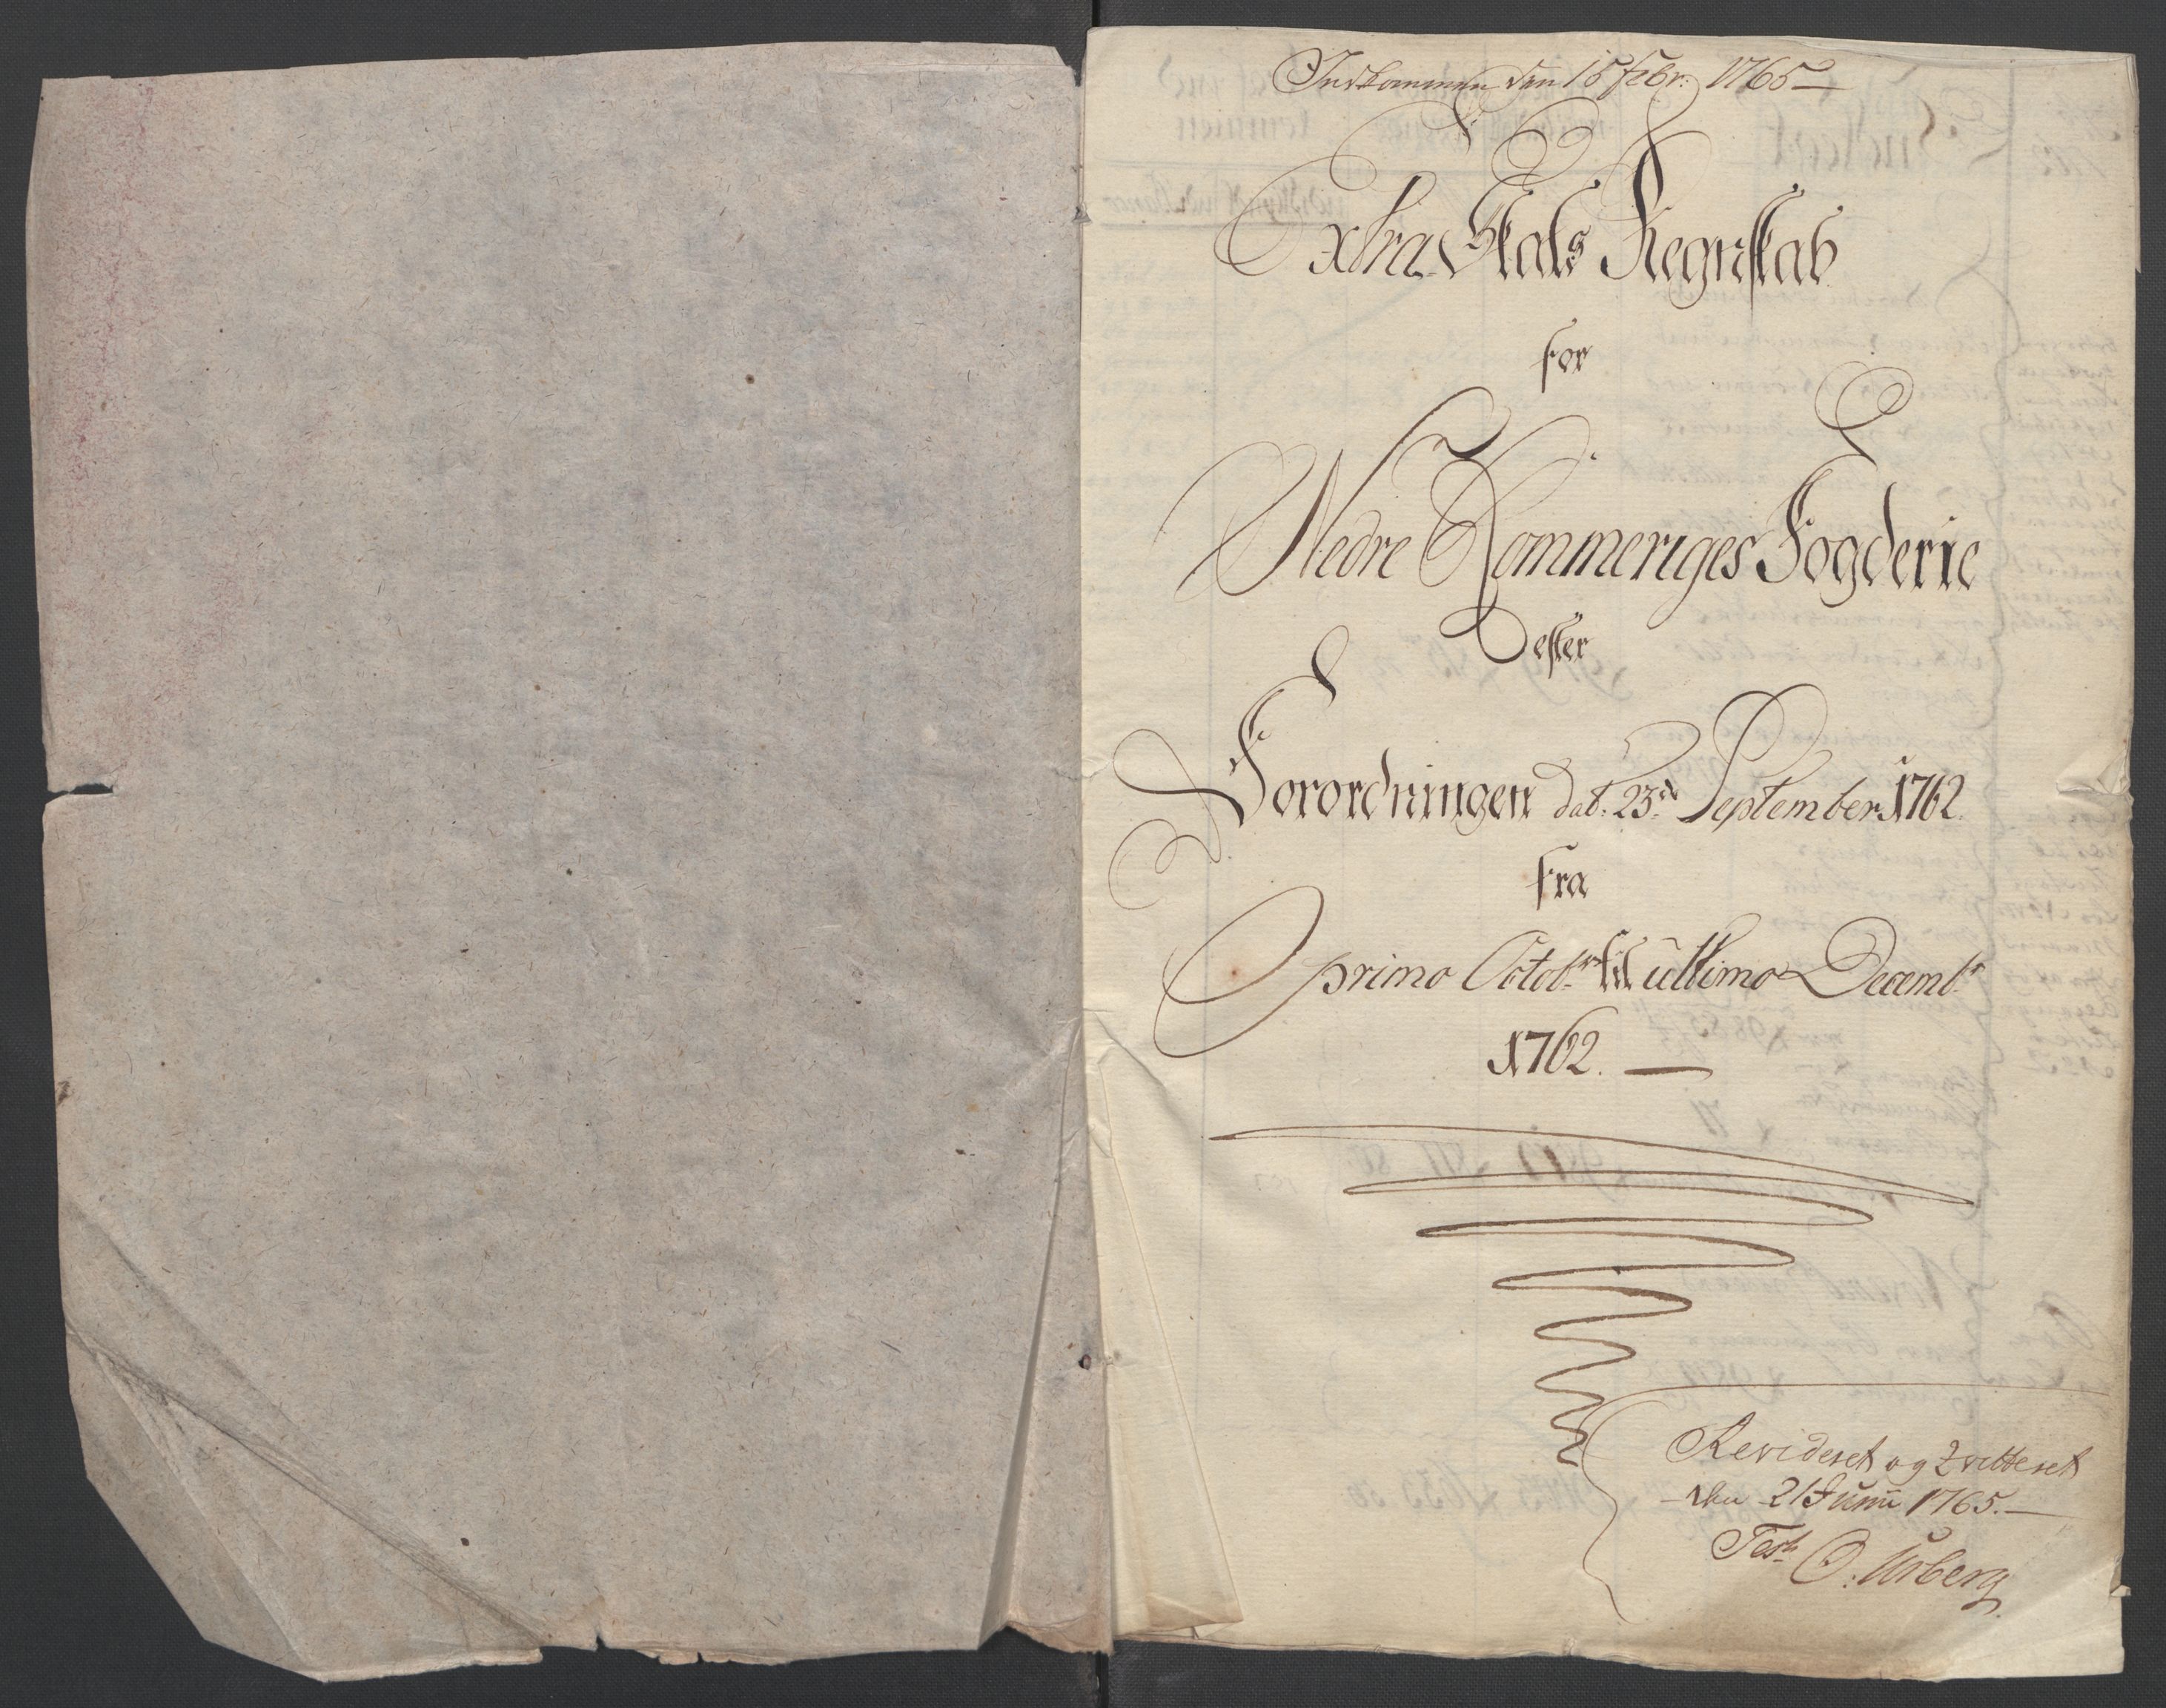 Indkommen den 15 Febr: 1765
Extra Skats Regnskab
for
Nedre Rommeriges Fogderie
efter
Forordningen dat: 23de September 1762.
fra
primo Octobr til ultimo Decembr
1762.
Revideret og Qvitteret
den 21 Junii 1765.
Test: O: Urberg